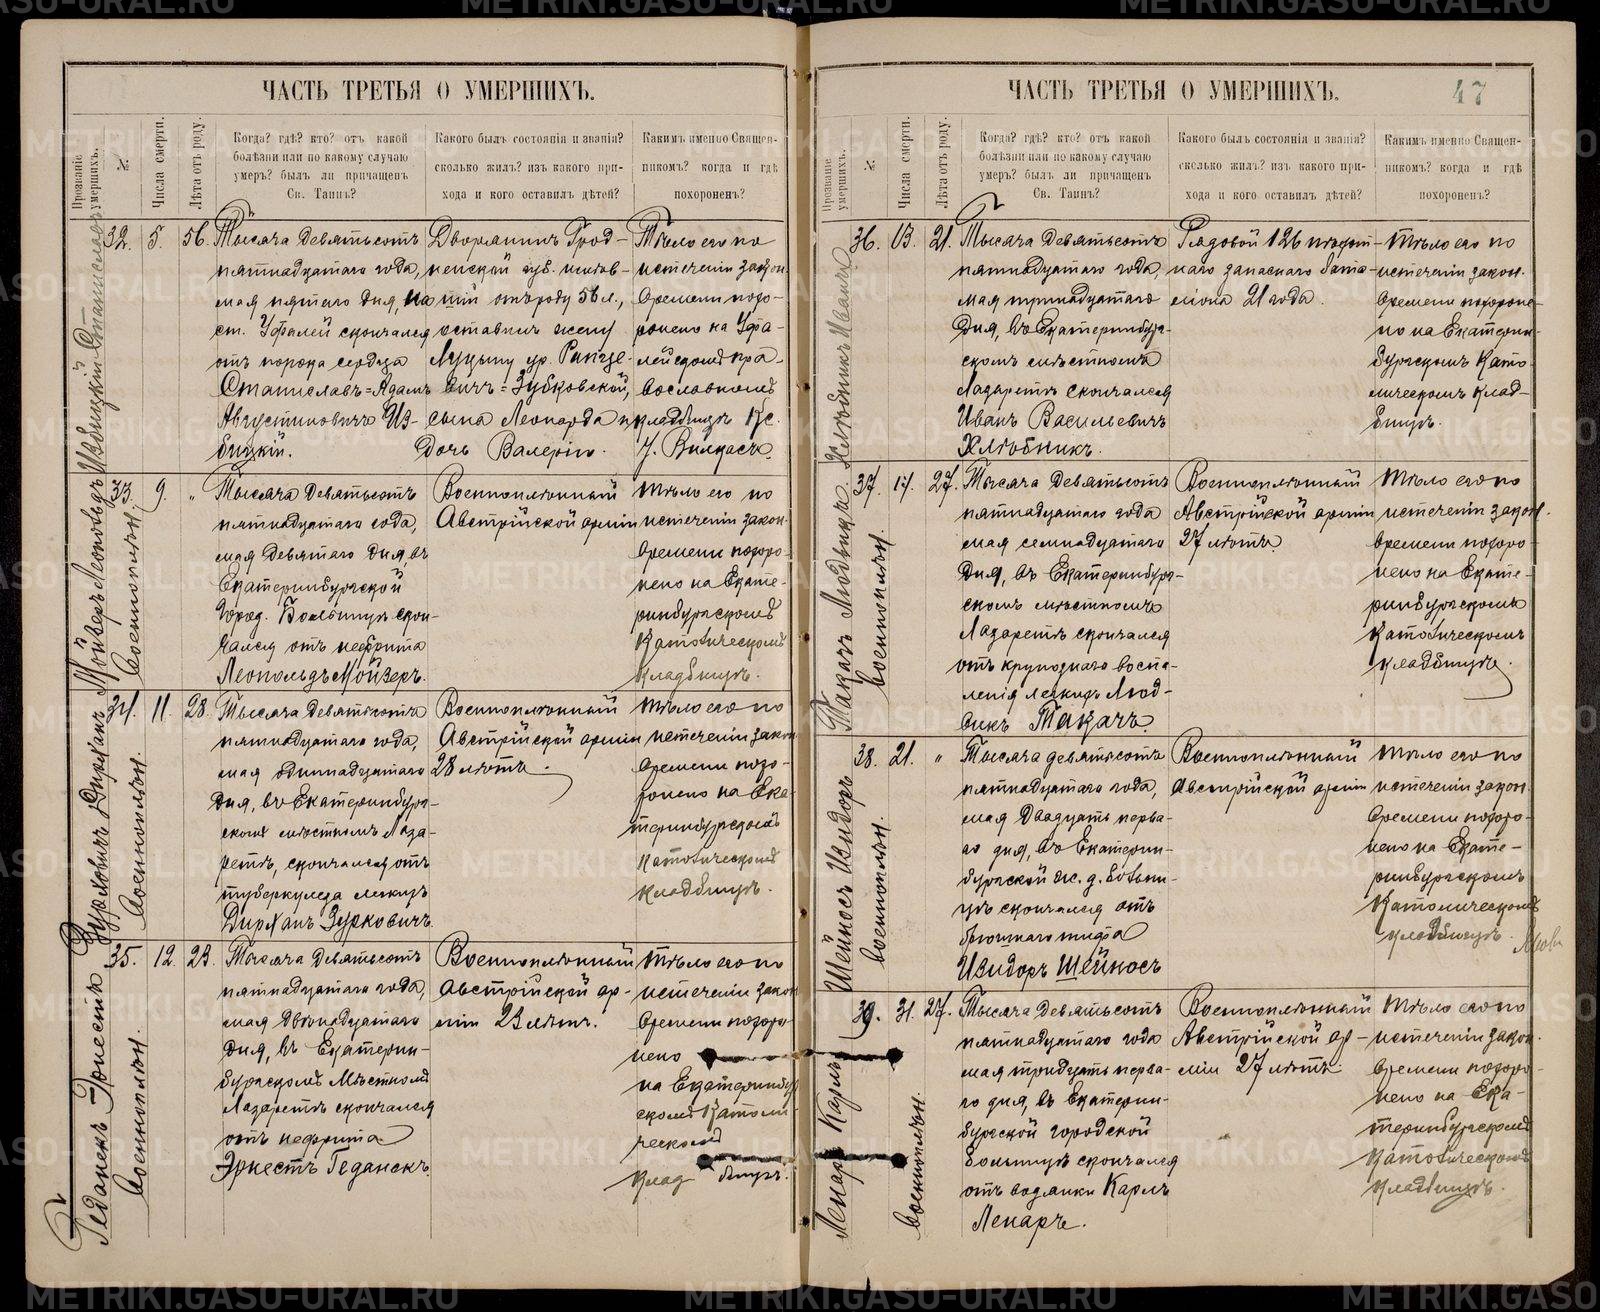 ЧАСТЬ ТРЕТЬЯ О УМЕРШИХЪ.
Прозваніе умершихъ.
№
Числа смерти.
Лѣта отъ роду.
Когда? гдѣ? кто? отъ какой
болѣзни или по какому случаю
умеръ? былъ ли причащенъ
Св. Таинъ?
Какого былъ состоянія и званія?
сколько жилъ? изъ какого при-
хода и кого оставилъ дѣтей?
Какимъ именно Священ-
никомъ? когда и гдѣ
похороненъ?
Избицкій Станиславъ
32.
5.
56.
Тысяча девятьсотъ
пятнадцатаго года,
мая пятаго дня, на
ст. Уфалей скончался
отъ порока сердца
Станиславъ=Адамъ
Августиновичъ Из-
бицкій.
Дворянинъ Грод-
ненской губ.
отъ роду 56 л.,
оставилъ жену
ур.
Зубковской,
сына Леонарда и
дочь Валерію.
Тѣло его по
истеченіи закон.
времени похо-
ронено на Уфа-
лейскомъ пра-
вославномъ
кладбищѣ Кс.
Мойзеръ Леопольдъ
военноплѣн.
33.
9.
"
Тысяча девятьсотъ
пятнадцатаго года,
мая девятаго дня, въ
Екатеринбургской
Город. Больницѣ скон-
чался отъ нефрита
Леопольдъ Мойзеръ.
Военноплѣнный
Австрійской арміи
Тѣло его по
истеченіи закон.
времени похоро-
нено на Екате-
ринбургскомъ
Католическомъ
кладбищѣ.
Зурковичъ Дирханъ
военноплѣн.
34.
11.
28.
Тысяча девятьсотъ
пятнадцатаго года,
мая одиннадцатаго
дня, въ Екатеринбург-
скомъ мѣстномъ Лаза-
ретѣ, скончался отъ
туберкулеза легкихъ
Дирханъ Зурковичъ.
Военноплѣнный
Австрійской арміи
28 лѣтъ.
Тѣло его по
истеченіи закон
времени похо-
ронено на Ека-
теринбургскомъ
Католическомъ
кладбищѣ.
Геданскъ Эрнестъ
военноплѣн.
35.
12.
23.
Тысяча девятьсотъ
пятнадцатаго года,
мая двѣнадцатаго
дня, въ Екатерин-
бургскомъ Мѣстномъ
Лазаретѣ скончался
отъ нефрита
Эрнестъ Геданскъ.
Военноплѣнный
Австрійской ар-
міи 23 лѣтъ.
Тѣло его по
истеченіи закон
времени похоро-
нено
на Екатеринбург
скомъ Католи-
ческомъ
клад бищѣ.
ЧАСТЬ ТРЕТЬЯ О УМЕРШИХЪ.
47
Прозваніе умершихъ.
№
Числа смерти.
Лѣта отъ роду.
Когда? гдѣ? кто? отъ какой
болѣзни или по какому случаю
умеръ? былъ ли причащенъ
Св. Таинъ?
Какого былъ состоянія и званія?
сколько жилъ? изъ какого при-
хода и кого оставилъ дѣтей?
Какимъ именно Священ-
никомъ? когда и гдѣ
похороненъ?
Хлѣбникъ Иванъ
36.
13.
21.
Тысяча девятьсотъ
пятнадцатаго года,
мая тринадцатаго
дня, въ Екатеринбург-
скомъ мѣстномъ
Лазаретѣ скончался
Иванъ Васильевичъ
Хлѣбникъ.
Рядовой 126 пѣхот-
наго запаснаго бата-
ліона 21 года.
Тѣло его по
истеченіи закон.
времени похороне-
но на Екатерин-
бургскомъ Като-
лическомъ клад-
бищѣ.
Такачъ Людвикъ.
военноплѣн.
37.
17.
27.
Тысяча девятьсотъ
пятнадцатаго года
мая семнадцатаго
дня, въ Екатеринбург-
скомъ мѣстномъ
Лазаретѣ скончался
отъ крупознаго воспа-
ленія легкихъ Люд-
викъ Такачъ.
Военноплѣнный
Австрійской арміи
27 лѣтъ.
Тѣло его по
истеченіи закон.
времени похоро-
нено на Екате-
ринбургскомъ
Католическомъ
кладбищѣ.
Шейносъ Изидоръ
военноплѣн.
38.
21.
"
Тысяча девятьсотъ
пятнадцатаго года,
мая двадцать перва-
го дня, въ Екатерин-
бургской ж. д. больни-
цѣ скончался отъ
брюшнаго тифа
Изидоръ Шейносъ
Военноплѣнный
Австрійской арміи
Тѣло его по
истеченіи закон.
времени похоро-
нено на Екате-
ринбургскомъ
Католическомъ
кладбищѣ.
Ленаръ Карлъ
военноплѣн.
39.
31.
27.
Тысяча девятьсотъ
пятнадцатаго года
мая тридцать перва-
го дня, въ Екатерин-
бургской городской
больницѣ скончался
отъ водянки Карлъ
Ленаръ.
Военноплѣнный
Австрійской ар-
міи 27 лѣтъ.
Тѣло его по
истеченіи закон.
времени похоро-
нено на Ека-
теринбургскомъ
Католическомъ
кладбищѣ.
METRIKI.GASO-URAL.RU